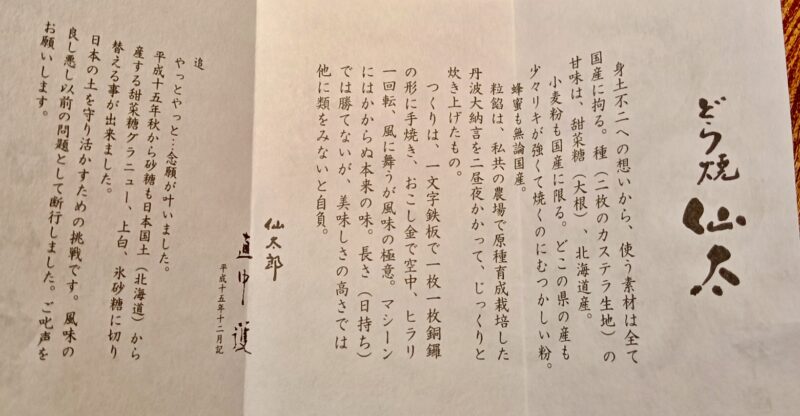 どら焼 仙太
身土不二への想いから、使う素材は全て
国産に拘る。種（二枚のカステラ生地）の
甘味は、甜菜糖（大根）、北海道産。
小麦粉も国産に限る。どこの県の産も
少々リキが強くて焼くのにむつかしい粉。
蜂蜜も無論国産。
粒餡は、私共の農場で原種育成栽培した
丹波大納言を二昼夜かかって、じっくりと
炊き上げたもの。
つくりは、一文字鉄板で一枚一枚銅鑼
の形に手焼き、おこし金で空中、ヒラリ
一回転、風に舞うが風味の極意。マシーン
にはかからぬ本来の味。長さ（日持ち）
では勝てないが、美味しさの高さでは
他に類をみないと自負。
仙太郎
直中 護
平成十五年十二月記
追
やっとやっと…念願が叶いました。
平成十五年秋から砂糖も日本国土（北海道）から
産する甜菜糖グラニュー、上白、氷砂糖に切り
替える事が出来ました。
日本の土を守り活かすための挑戦です。風味の
良し悪し以前の問題として断行しました。ご叱声を
お願いします。